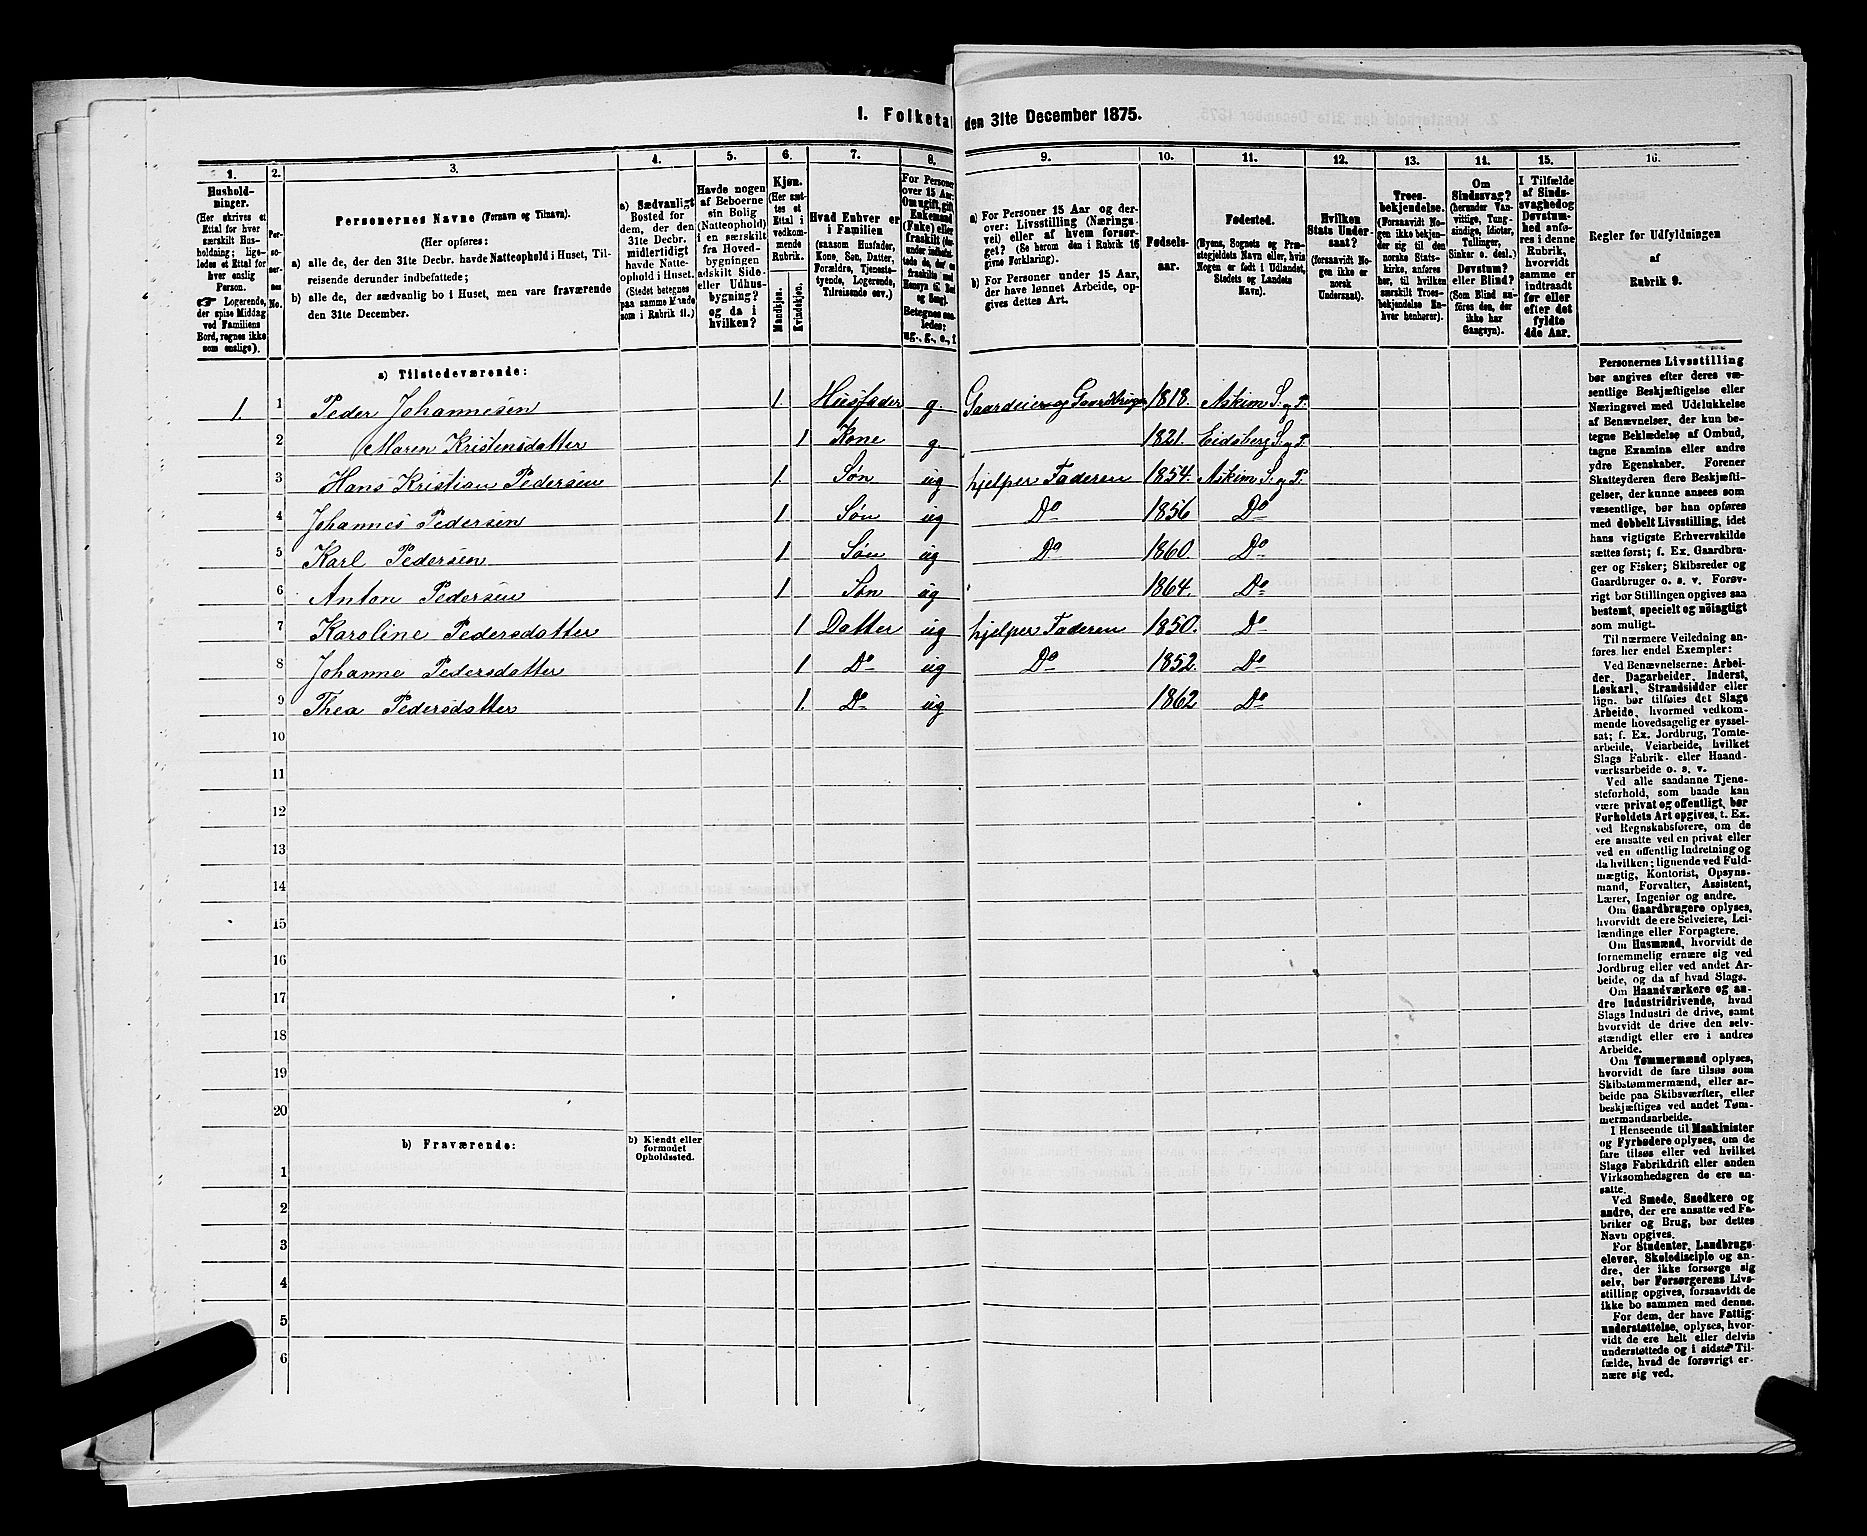 I. Folketal
den 31te December 1875.
1. 2. 3. 4. 5. 6. 7. 8. 9. 10. 11. 12. 13. 14. 15. 16.
Hushold-
ninger.
(Her skrives et
Ettal for hver
særskilt Hus-
holdning; lige-
ledes et Ettal for
hver enslig
Person.
☞ Logerende,
der spise Middag
ved Familiens
Bord, regnes ikke
som enslige).
Per-
so-
ner-
nes
No.
Personernes Navne (Fornavn og Tilnavn).
(Her opføres:
a) alle de, der den 31te Decbr. havde Natteophold i Huset, Til-
reisende derunder indbefattede;
b) alle de, der sædvanlig bo i Huset, men vare fraværende
den 31te December.
a) Sædvanligt
Bosted for
dem, der den
31te Decbr.
midlertidigt
havde Natte-
ophold i Huset.
(Stedet betegnes
paa samme Maade
som i Rubrik 11.)
Havde nogen
af Beboerne
sin Bolig
(Natteophold)
i en særskilt
fra Hoved-
bygningen
adskilt Side-
eller Udhus-
bygning?
og da i
hvilken?
Kjøn.
(Her sæt-
tes et
Ettal i
vedkom-
mende
Rubrik.
Mandkjøn.
Kvindekjøn.
Hvad Enhver er
i Familien
(saasom Husfader,
Kone, Søn, Datter,
Forældre, Tjeneste-
tyende, Logerende,
Tilreisende osv.)
For Personer
over 15 Aar:
Om ugift, gift,
Enkemand
(Enke) eller
fraskilt
Betegnes saa-
ledes:
ug., g., e., f
a) For Personer 15 Aar og der-
over: Livsstilling (Nærings-
vei) eller af hvem forsør-
get? (Se herom den i Rubrik 16
givne Forklaring).
b) For Personer under 15 Aar,
der have lønnet Arbeide, op-
gives dettes Art.
Fødsels-
aar.
Fødested.
(Byens, Sognets og Præ-
stegjeldets Navn eller, hvis
Nogen er født i Udlandet,
Stedets og Landets
Navn).
Hvilken
Stats Under-
saat?
(forsaavidt No-
gen ikke er
norsk
Undersaat).
Troes-
bekjendelse.
(Forsaavidt No-
gen ikke bekjen-
der sig til den
norske Stats-
kirke, anføres
her, til hvilken
særskilt Troes-
bekjendelse En-
hver henhører).
Om
Sindssvag?
(herunder Van-
vittige, Tung-
sindige, Idioter,
Tullinger,
Sinker o. desl.)
Døvstum?
eller Blind?
(Som Blind an-
føres den, der
ikke har
Gangsyn).
I Tilfælde
af Sinds-
svaghed og
Døvstum-
hed anfø-
res i denne
Rubrik,
hvorvidt
samme er
indtraadt
før eller
efter det
fyldte
4de Aar.
Regler for Udfyldningen
af
Rubrik 9.
a) Tilstedeværende:
1 1 Peder Johannesen 1. Husfader g. Gaardeier og Gaardbruger 1818. Askim S. og P.
2 Maren Kristensdatter 1 Kone g. 1821. Eidsberg S. og P.
3 Hans Kristian Pedersen 1. Søn ug hjelper Faderen 1854. Askim S. og P.
4 Johannes Pedersen 1 Søn ug Do 1856 Do
5 Karl Pedersen 1 Søn ug Do 1860. Do
6 Anton Pedersen 1 Søn ug 1864. Do
7 Karoline Pedersdatter 1 Datter ug hjelper Faderen 1850. Do
8 Johanne Pedersdatter 1 Do ug Do 1852. Do
9 Thea Pedersdatter 1. Do ug 1862 Do
10
11
12
13
14
15
16
17
18
19
20
b) Fraværende:
b) Kjendt eller
formodet
Opholdssted.
1
2
3
4
5
6
Personernes Livsstilling
bør angives efter deres væ-
sentlige Beskjæftigelse eller
Næringsvei med Udelukkelse
af Benævnelser, der kun be-
tegne Beklædelse af Ombud,
tagne Examina eller andre
ydre Egenskaber. Forener
Skatteyderen flere Beskjæfti-
gelser, der kunne ansees som
væsentlige, bør han opføres
med dobbelt Livsstilling, idet
hans vigtigste Erhvervskilde
sættes først; f. Ex. Gaardbru-
ger og Fisker; Skibsreder og
Gaardbruger o. s. v. Forøv-
rigt bør Stillingen opgives saa
bestemt, specielt og nøiagtigt
som muligt.
Til nærmere Veiledning an-
føres her endel Exempler:
Ved Benævnelserne: Arbei-
der, Dagarbeider, Inderst,
Løskarl, Strandsidder eller
lign. bør tilføies det Slags
Arbeide, hvormed vedkom-
mende hovedsagelig er syssel-
sat; f. Ex. Jordbrug, Tomte-
arbeide, Veiarbeide, hvilket
Slags Fabrik- eller Haand-
værksarbeide o. s. v.
Ved alle saadanne Tjene-
steforhold, som baade kan
være privat og offentligt, bør
Forholdets Art opgives, t. Ex.
ved Regnskabsførere, om de
ere ansatte ved en privat eller
ved en offentlig Indretning og
da hvilken; lignende ved Fuld-
mægtig, Kontorist, Opsyns-
mand, Forvalter, Assistent,
Lærer, Ingeniør og andre.
Om Gaardbrugere oplyses,
hvorvidt de ere Selveiere, Lei-
lændinge eller Forpagtere.
Om Husmænd, hvorvidt de
fornemmelig ernære sig ved
Jordbrug eller ved andet Ar-
beide, og da af hvad Slags.
Om Haandværkere og an-
dre Industridrivende, hvad
Slags Industri de drive, samt
hvorvidt de drive den selv-
stændigt eller ere i andres
Arbeide.
Om Tømmermænd oplyses,
hvorvidt de fare tilsøs som
Skibstømmermænd, eller ar-
beide paa Skibsværfter, eller
beskjæftiges ved andet Tøm-
mermandsarbeide.
I Henseende til Maskinister
og Fyrbødere oplyses, om de
fare tilsøs eller ved hvilket
Slags Fabrikdrift eller anden
Virksomhedsgren de ere an-
satte.
Ved Smede, Snedkere og
andre, der ere ansatte ved Fa-
briker og Brug, bør dettes
Navn opgives.
For Studenter, Landbrugs-
elever, Skoledisciple og an-
dre, der ikke forsørge sig
selv, bør Forsørgerens Livs-
stilling opgives, forsaavidt de
ikke bo sammen med denne.
For dem, der have Fattig-
understøttelse, oplyses, hvor-
vidt de ere helt eller delvis
understøttede og i sidste Til-
fælde, hvad de forøvrigt er-
nære sig ved.